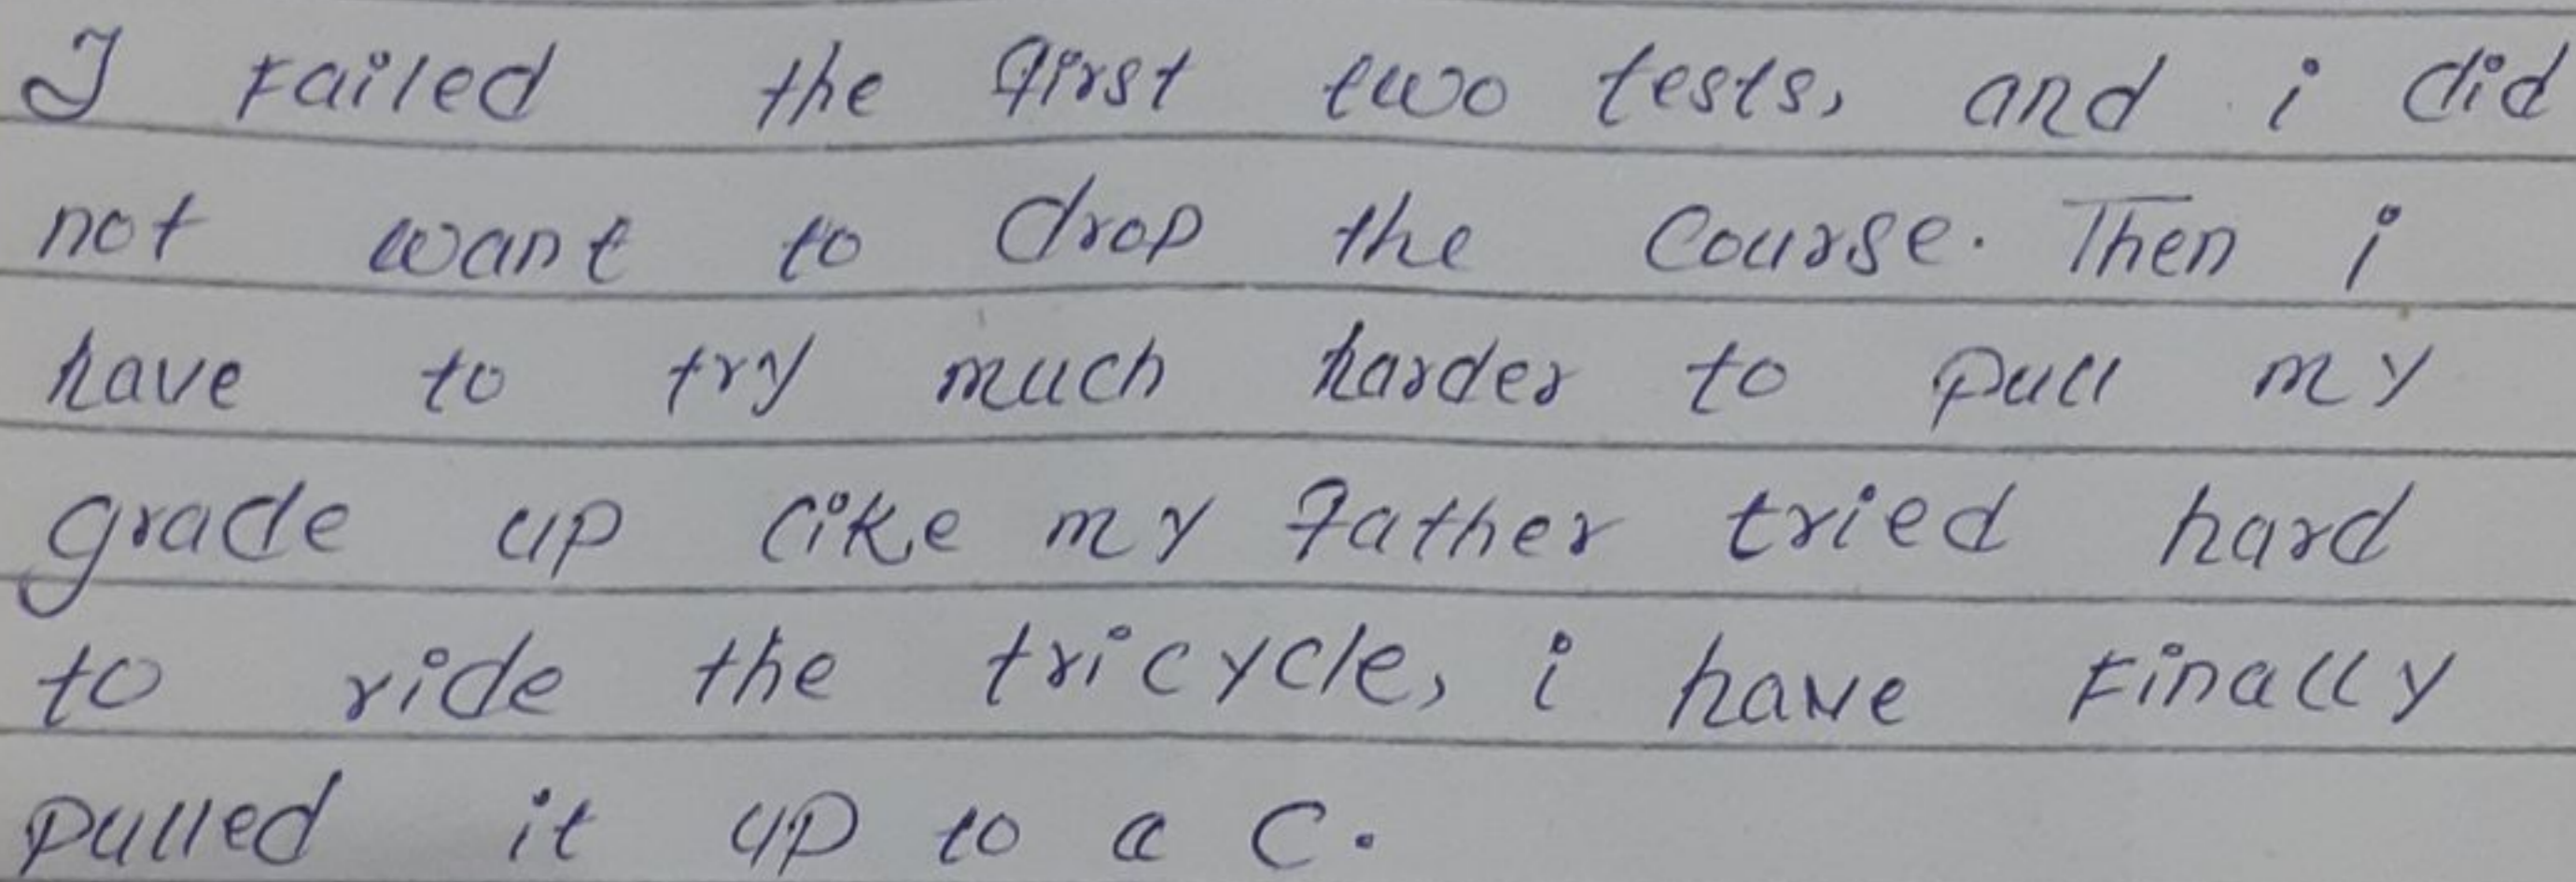 I failed the first two tests, and i did
not want to drop the course. Then i
have to try much harder to pull my
grade up like my father tried hard
to ride the tricycle, i have finally
pulled it up to a C.